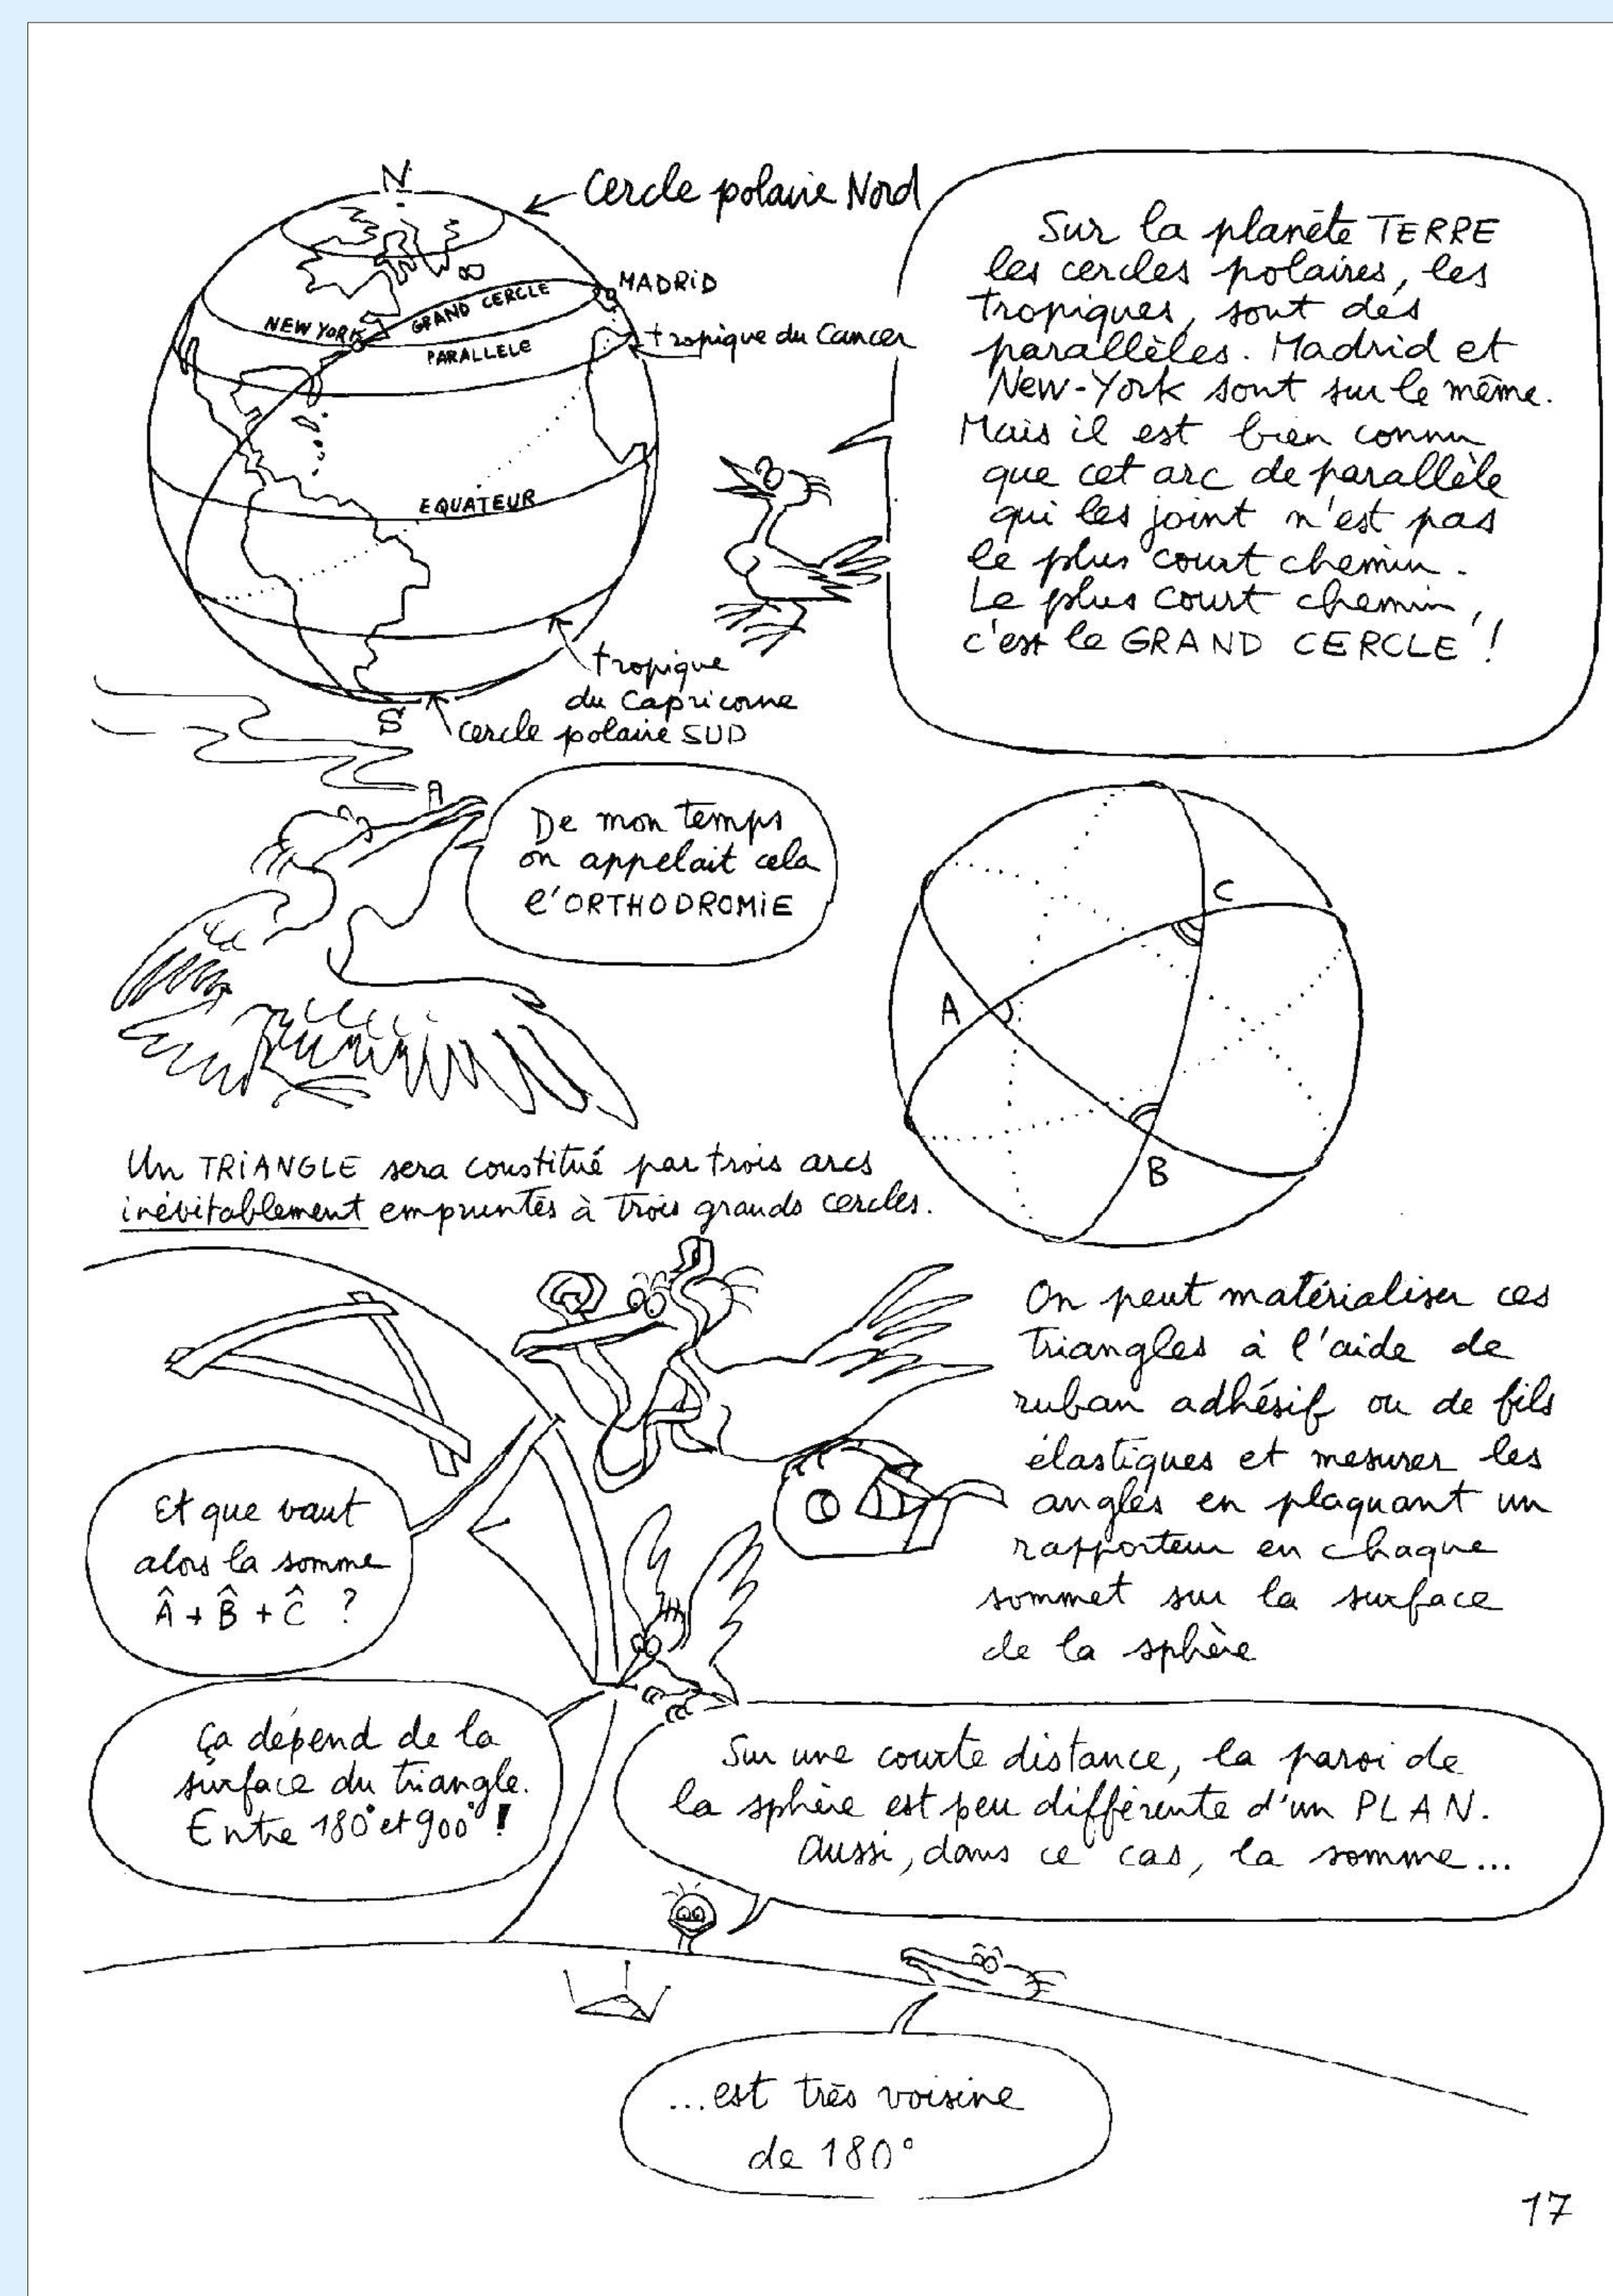 N
Cercle polaire Nord
MADRID
GRAND CERCLE
NEW YORK
PARALLELE
tropique du Cancer
EQUATEUR
tropique
du Capricorne
S
cercle polaire SUD
Sur la planète TERRE
les cercles polaires, les
tropiques, sont des
parallèles. Madrid et
New-York sont sur le même.
Mais il est bien connu
que cet arc de parallèle
qui les joint n'est pas
le plus court chemin.
Le plus court chemin,
c'est le GRAND CERCLE !
De mon temps
on appelait cela
l'ORTHODROMIE
C
A
B
Un TRIANGLE sera constitué par trois arcs
inévitablement empruntés à trois grands cercles.
On peut matérialiser ces
triangles à l'aide de
ruban adhésif ou de fils
élastiques et mesurer les
angles en plaquant un
rapporteur en chaque
sommet sur la surface
de la sphère
Et que vaut
alors la somme
Â + B̂ + Ĉ ?
Ça dépend de la
surface du triangle.
Entre 180° et 900° !
Sur une courte distance, la paroi de
la sphère est peu différente d'un PLAN.
Aussi, dans ce cas, la somme...
...est très voisine
de 180°
17